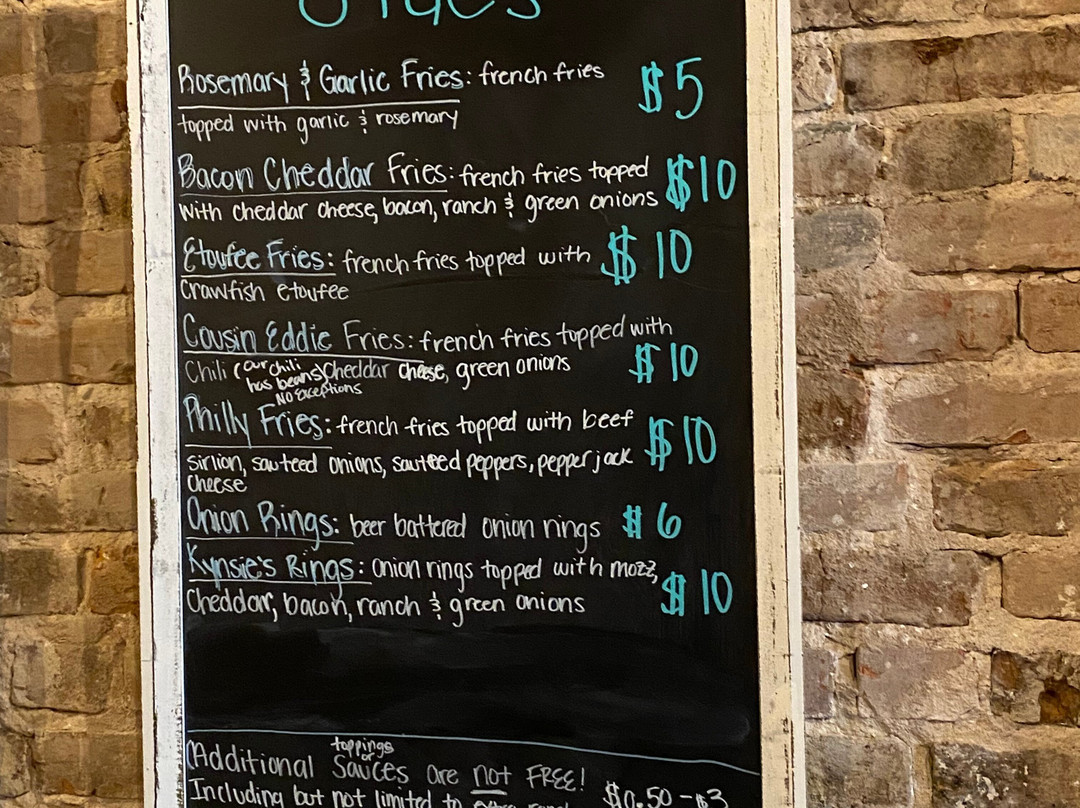 Sides
Rosemary & Garlic Fries: french fries $5
topped with garlic & rosemary
Bacon Cheddar Fries: french fries topped $10
with cheddar cheese, bacon, ranch & green onions
Etoufee Fries: french fries topped with $10
Crawfish etoufee
Cousin Eddie Fries: french fries topped with
Chili (our chili has beans) Cheddar cheese, green onions $10
No Exceptions
Philly Fries: french fries topped with beef $10
sirlion, sauteed onions, sauteed peppers, pepper jack
Cheese
Onion Rings: beer battered onion rings $6
Kynsie's Rings: onion rings topped with mozz, $10
Cheddar, bacon, ranch & green onions
(Additional toppings or Sauces are not FREE!
Including but not limited to $0.50 - $3